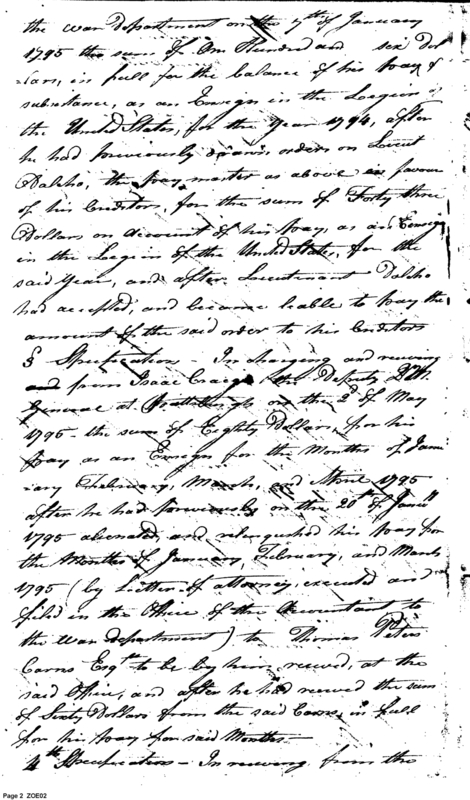 the War Department on the 7th of January
1795 the sum of One Hundred and six Dol
lars, in full for the balance of his pay &
subsistance, as an Ensign in the Legion of
the United States, for the Year 1794, after
he had previously drawn orders on Lieut
Dalcho, the pay master as above in favour
of his Creditors, for the sum of Forty three
Dollars on Account of his pay, as an Ensign
in the Legion of the United States, for the
said Year, and after Lieutenant Dalcho
had accepted, and became leable to pay the
amount of the said order to his Creditors
3 Specification - In charging and receiving
from Isaac Craige, the Deputy Q.M.
General at Pittsburgh on the 2d of May
1795 - the sum of Eighty Dollars, for his
pay as an Ensign for the Months of Janu
ary February, March, and April 1795
after he had previously on the 20th of Janu'y
1795 alienated, and relenqushed his pay for
the Months of January, February, and March
1795 (by Letter of attorney, executed and
filed in the Office of the Accountant to
the War department) to Thomas Peters
Carns Esqr to be by him receved, at the
said Office, and after he had receved the sum
of Sixty Dollars from the said Carns, in full
for his pay for said Months -
4th Specification - In receving from the
Page 2 ZOE02